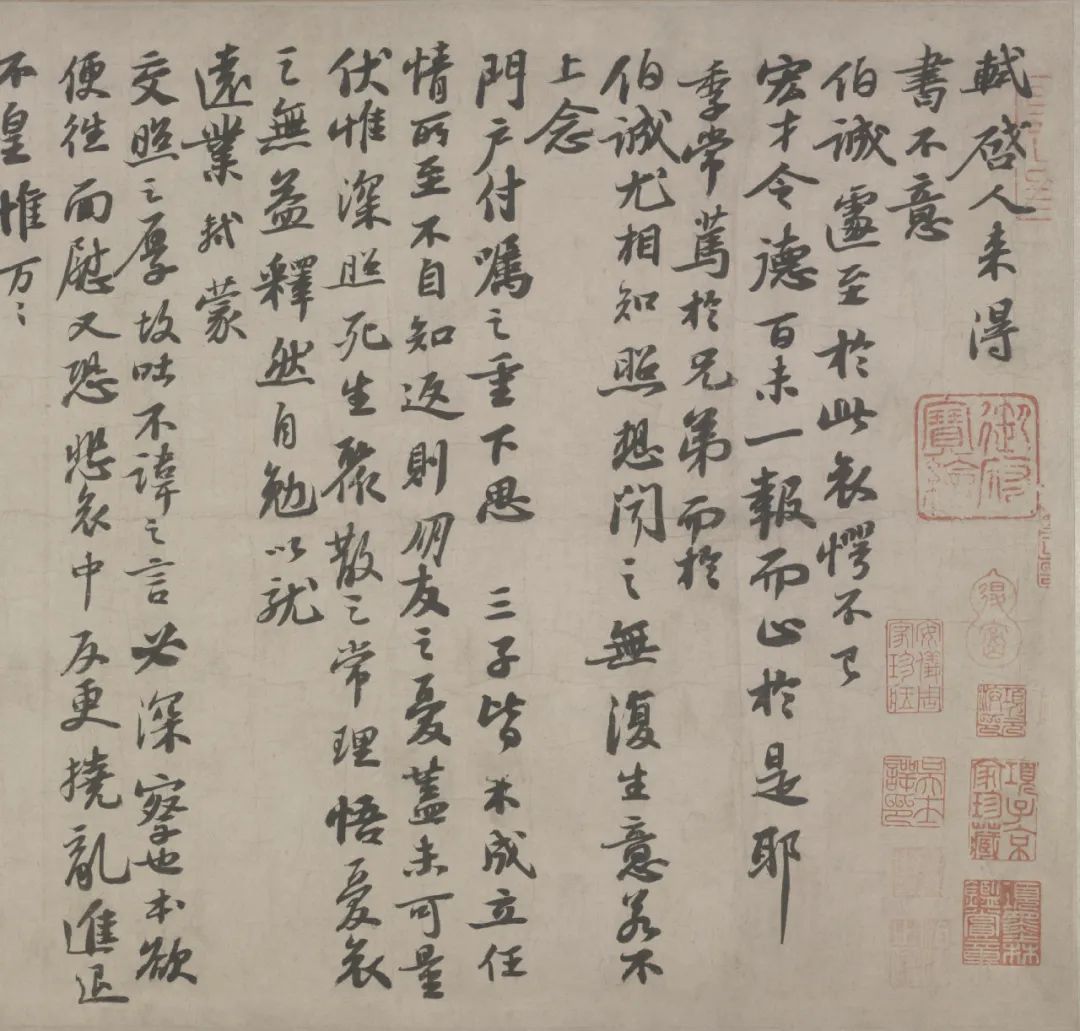 軾啓人来得
書不意
伯誠遽至於此哀愕不已
宏才令德百未一報而止於是耶
季常篤於兄弟而於
伯誠尤相知照想聞之無復生意若不
上念
門户付囑之重下思三子皆未成立任
情所至不自知返則朋友之憂蓋未可量
伏惟深照死生聚散之常理悟憂哀
之無益釋然自勉以就
遠業軾蒙
交照之厚故吐不諱之言必深察也本欲
便往面慰又恐悲哀中反更撓亂進退
不皇惟万〻
御府寶繪
項子京家珍藏